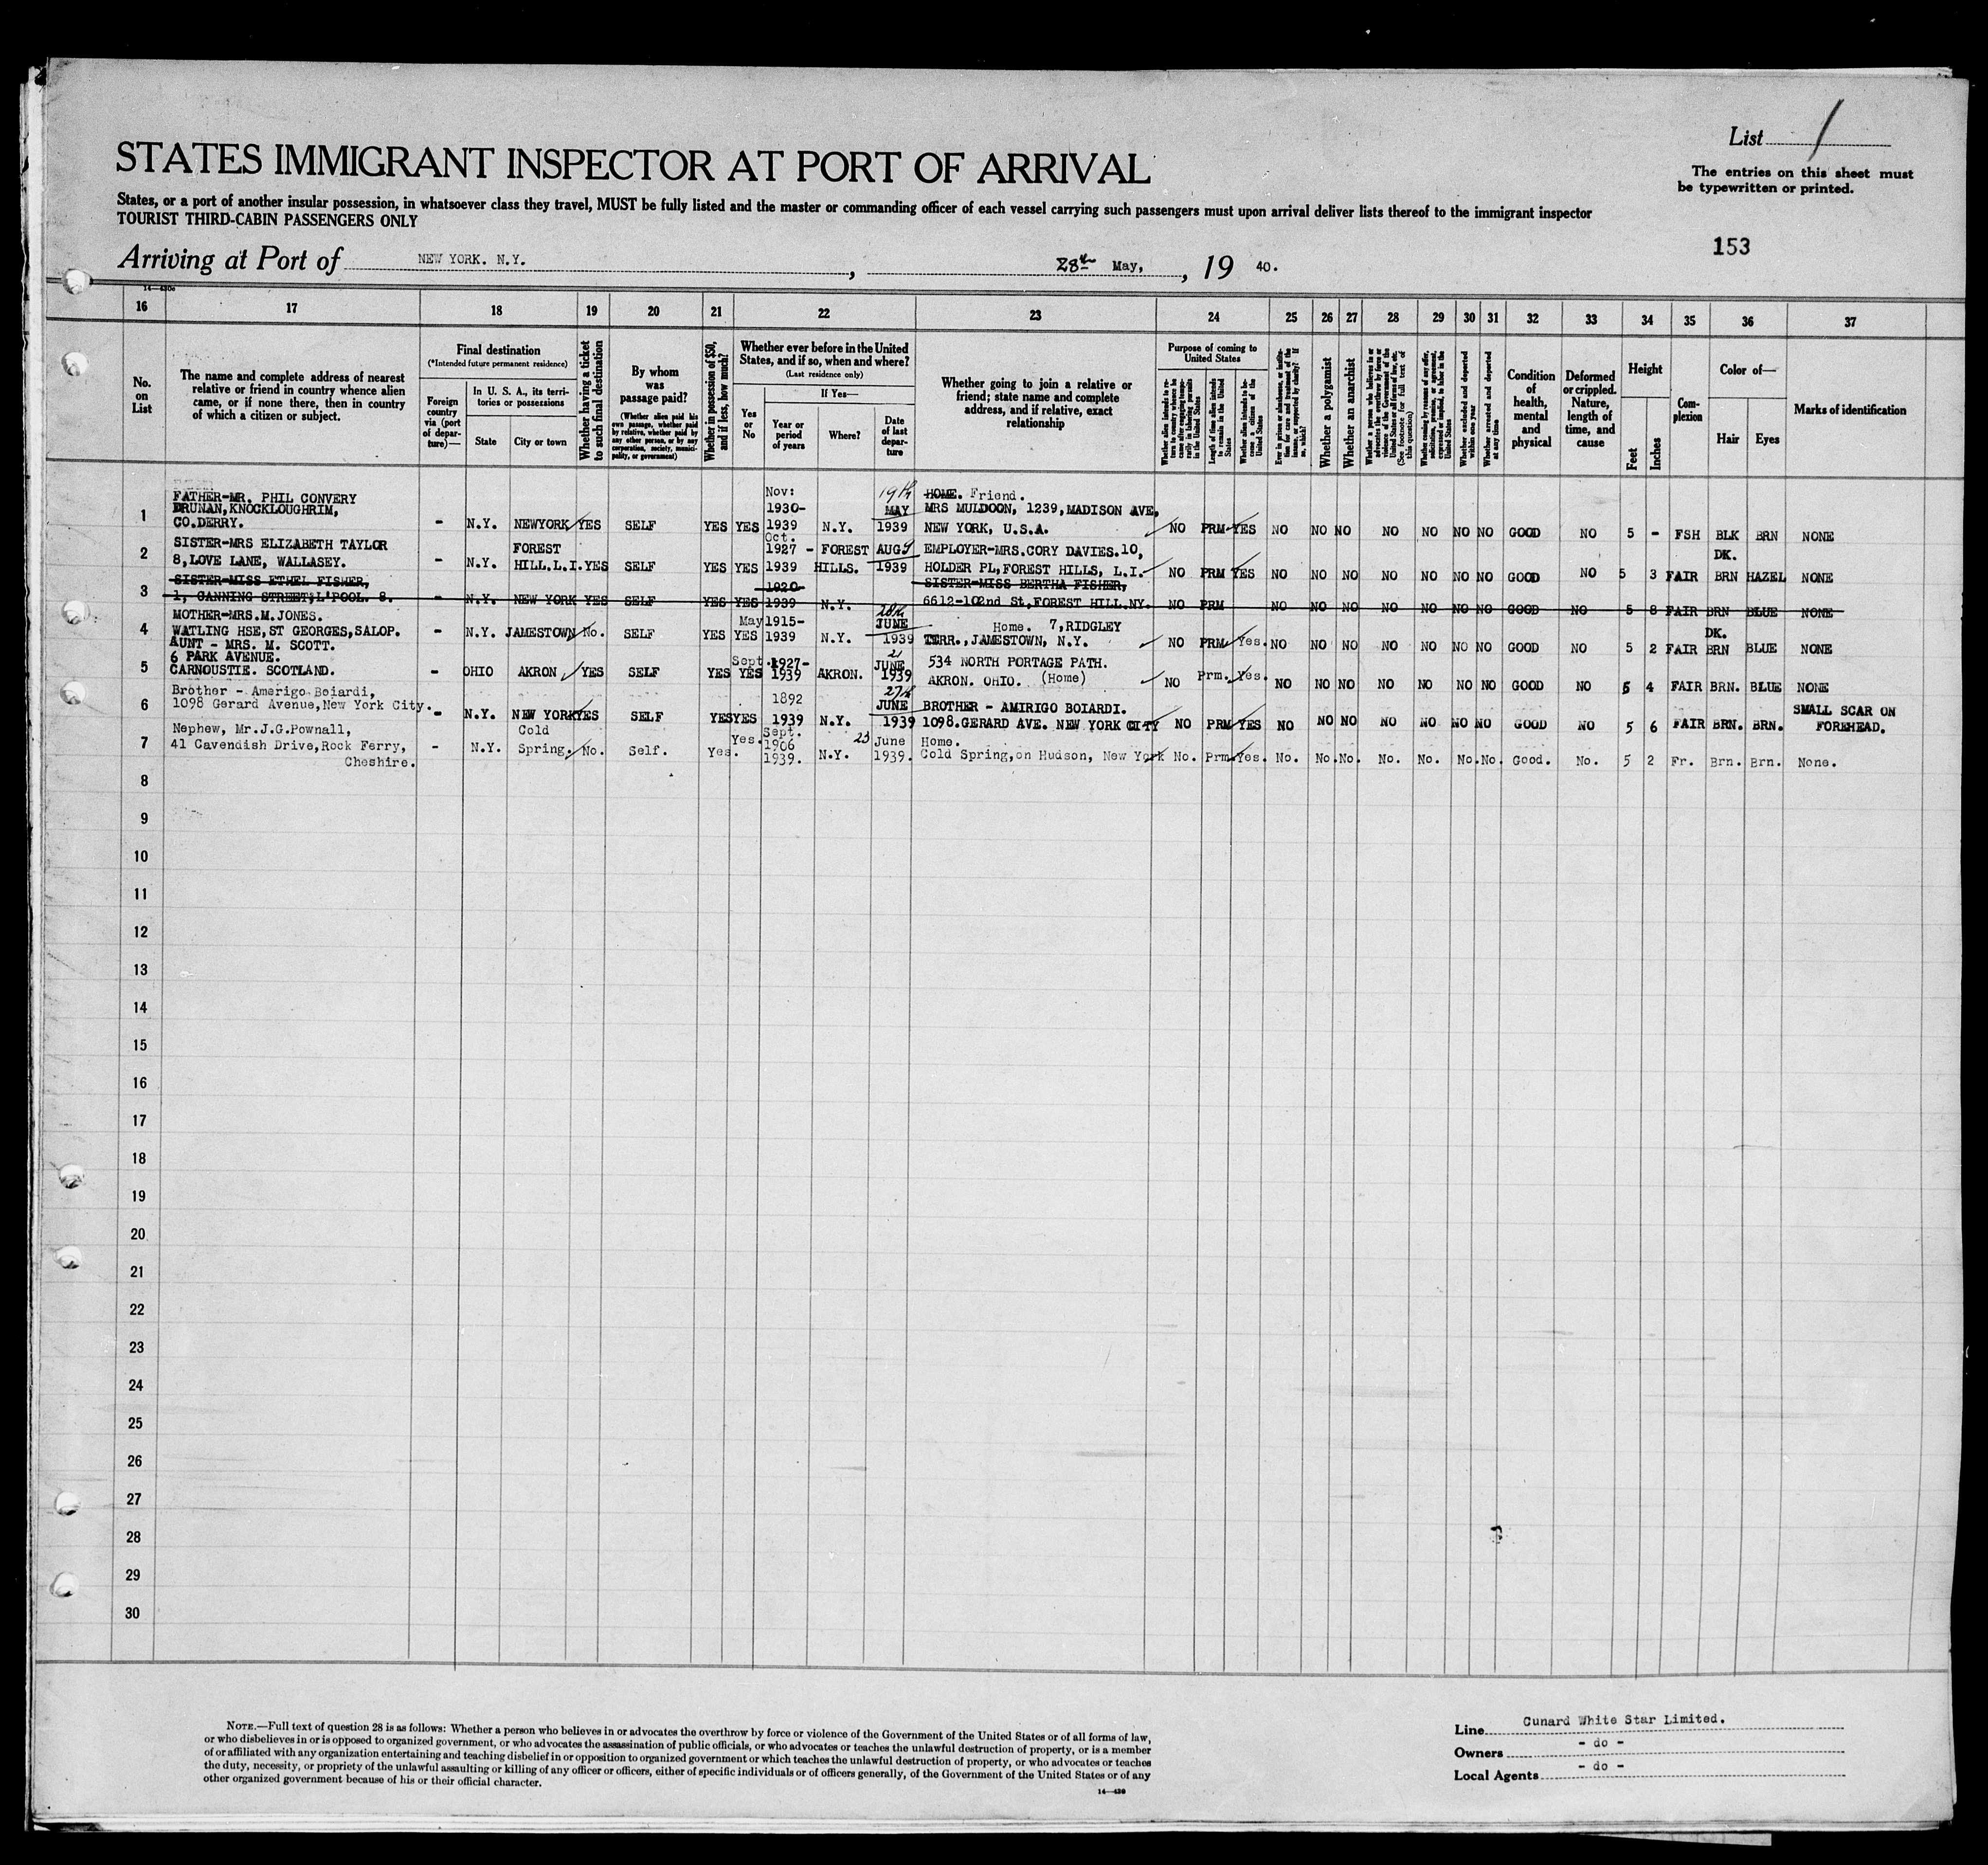 List 1
The entries on this sheet must
be typewritten or printed.
STATES IMMIGRANT INSPECTOR AT PORT OF ARRIVAL
States, or a port of another insular possession, in whatsoever class they travel, MUST be fully listed and the master or commanding officer of each vessel carrying such passengers must upon arrival deliver lists thereof to the immigrant inspector
TOURIST THIRD-CABIN PASSENGERS ONLY
153
Arriving at Port of NEW YORK. N.Y. , 28th May, , 19 40.
16 17 18 19 20 21 22 23 24 25 26 27 28 29 30 31 32 33 34 35 36 37
No. on List
The name and complete address of nearest
relative or friend in country whence alien
came, or if none there, then in country
of which a citizen or subject.
Final destination
(*Intended future permanent residence)
Foreign country via (port of departure)—
In U. S. A., its territories or possessions
State
City or town
Whether having a ticket to such final destination
By whom was passage paid?
(Whether alien paid his own passage, whether paid by relative, whether paid by any other person, or by any corporation, society, municipality, or government)
Whether in possession of $50, and if less, how much?
Whether ever before in the United States, and if so, when and where?
(Last residence only)
Yes or No
If Yes—
Year or period of years
Where?
Date of last departure
Whether going to join a relative or
friend; state name and complete
address, and if relative, exact
relationship
Purpose of coming to United States
Length of time alien intends to remain in the United States
Whether alien intends to become a citizen of the United States
Whether a polygamist
Whether an anarchist
(See footnote for full text of this question)
Whether excluded and deported within one year
Whether arrested and deported at any time
Condition of health, mental and physical
Deformed or crippled. Nature, length of time, and cause
Height
Feet
Inches
Complexion
Color of—
Hair
Eyes
Marks of identification
1 FATHER-MR. PHIL CONVERY
DRUNAN, KNOCKLOUGHRIM,
CO.DERRY.
- N.Y. NEWYORK YES SELF YES YES Nov: 1930- 1939 N.Y. 19th MAY 1939
HOME. Friend.
MRS MULDOON, 1239, MADISON AVE,
NEW YORK, U.S.A.
NO PRM YES NO NO NO NO NO NO NO GOOD NO 5 - FSH BLK BRN NONE
2 SISTER-MRS ELIZABETH TAYLOR
8, LOVE LANE, WALLASEY.
- N.Y. FOREST HILL.L.I. YES SELF YES YES Oct. 1927 - 1939 FOREST HILLS. AUG 1939
EMPLOYER-MRS.CORY DAVIES.10,
HOLDER PL, FOREST HILLS, L.I.
NO PRM YES NO NO NO NO NO NO NO GOOD NO 5 3 FAIR DK. BRN HAZEL NONE
3 SISTER-MISS ETHEL FISHER,
1, CANNING STREET, L'POOL. 8.
- N.Y. NEW YORK YES SELF YES YES 1920- 1939 N.Y.
SISTER-MISS BERTHA FISHER,
6612-102nd St, FOREST HILL.NY.
NO PRM NO NO NO NO NO NO NO GOOD NO 5 8 FAIR BRN BLUE NONE
4 MOTHER-MRS.M.JONES.
WATLING HSE, ST GEORGES, SALOP.
- N.Y. JAMESTOWN No. SELF YES YES May 1915- 1939 N.Y. 28th JUNE 1939
Home. 7, RIDGLEY
TERR., JAMESTOWN, N.Y.
NO PRM Yes. NO NO NO NO NO NO NO GOOD NO 5 2 FAIR DK. BRN BLUE NONE
5 AUNT - MRS. M. SCOTT.
6 PARK AVENUE.
CARNOUSTIE. SCOTLAND.
- OHIO AKRON YES SELF YES YES Sept. 1927- 1939 AKRON. 21 JUNE 1939
534 NORTH PORTAGE PATH.
AKRON. OHIO. (Home)
NO Prm. Yes. NO NO NO NO NO NO NO GOOD NO 5 4 FAIR BRN. BLUE NONE
6 Brother - Amerigo Boiardi,
1098 Gerard Avenue, New York City.
- N.Y. NEW YORK YES SELF YES YES 1892 1939 N.Y. 27th JUNE 1939
BROTHER - AMIRIGO BOIARDI.
1098. GERARD AVE. NEW YORK CITY
NO PRM YES NO NO NO NO NO NO NO GOOD NO 5 6 FAIR BRN. BRN. SMALL SCAR ON FOREHEAD.
7 Nephew, Mr.J.G.Pownall,
41 Cavendish Drive, Rock Ferry,
Cheshire.
- N.Y. Cold Spring. No. Self. Yes. Yes. Sept. 1906 1939. N.Y. 23 June 1939.
Home.
Cold Spring, on Hudson, New York
No. Prm Yes. No. No. No. No. No. No. No. Good. No. 5 2 Fr. Brn. Brn. None.
8
9
10
11
12
13
14
15
16
17
18
19
20
21
22
23
24
25
26
27
28
29
30
NOTE.—Full text of question 28 is as follows: Whether a person who believes in or advocates the overthrow by force or violence of the Government of the United States or of all forms of law,
or who disbelieves in or is opposed to organized government, or who advocates the assassination of public officials, or who advocates or teaches the unlawful destruction of property, or is a member
of or affiliated with any organization entertaining and teaching disbelief in or opposition to organized government or which teaches the unlawful destruction of property, or who advocates or teaches
the duty, necessity, or propriety of the unlawful assaulting or killing of any officer or officers, either of specific individuals or of officers generally, of the Government of the United States or of any
other organized government because of his or their official character.
Line Cunard White Star Limited.
Owners - do -
Local Agents - do -